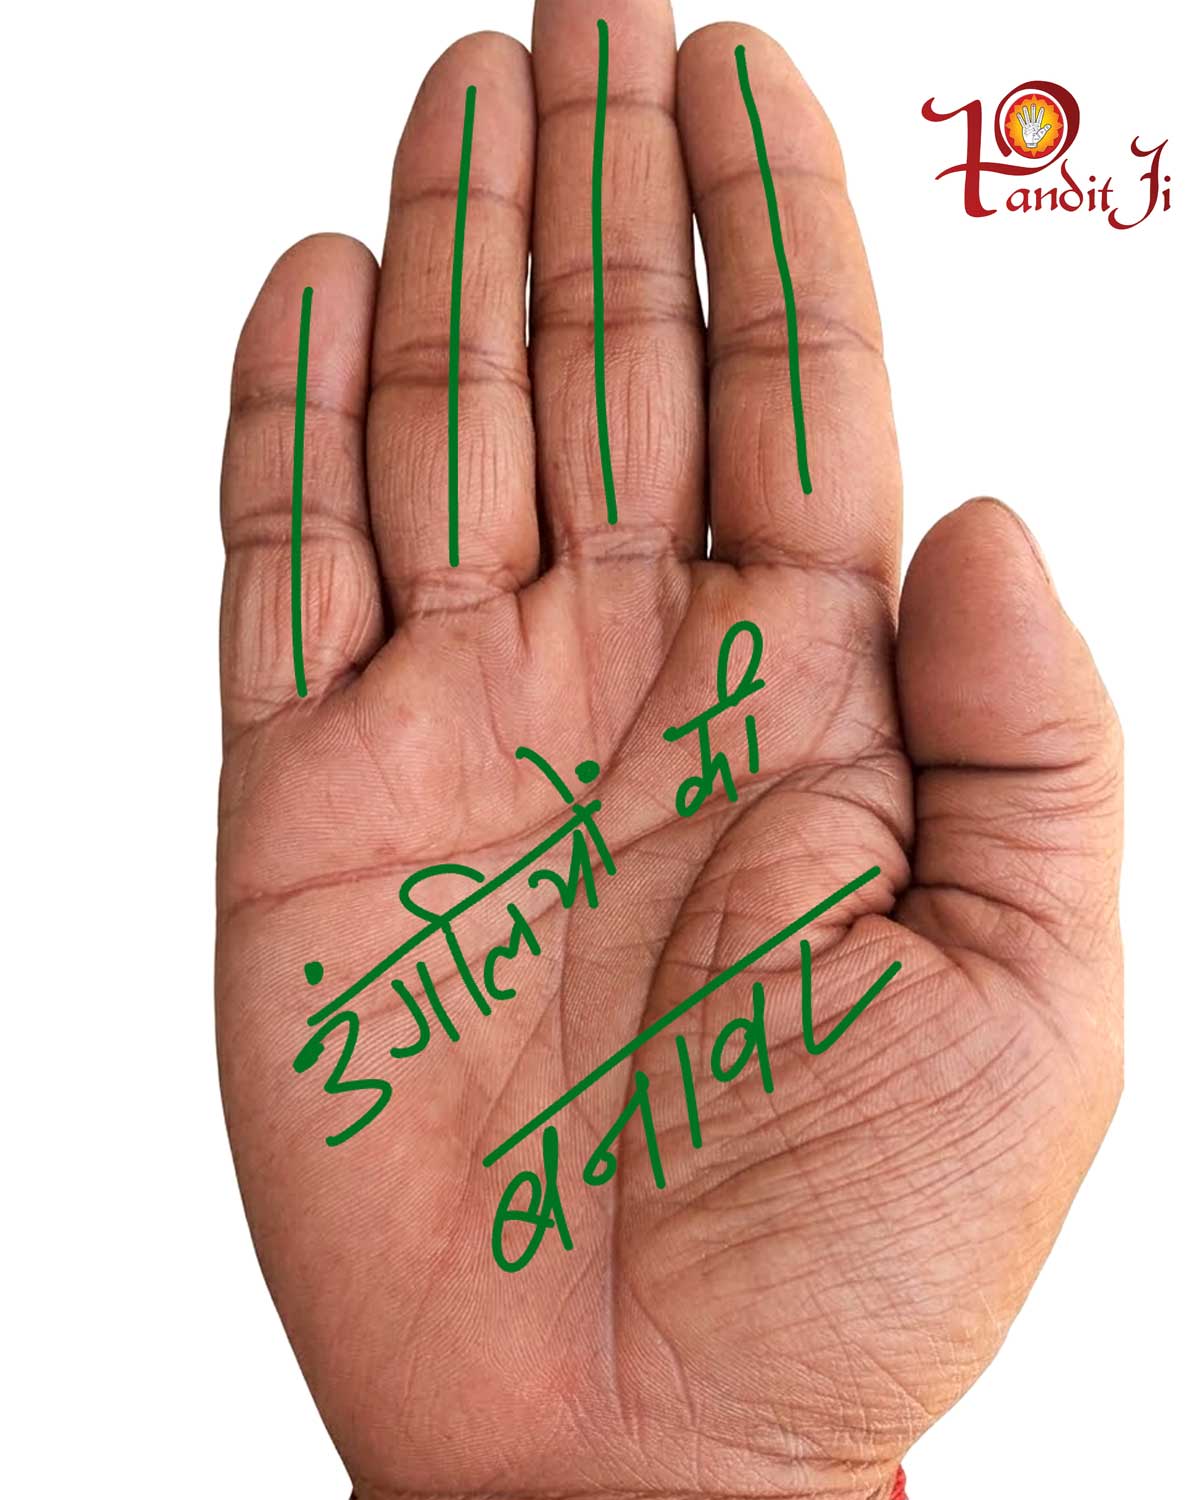 Pandit Ji
उंगलियों की
बनावट